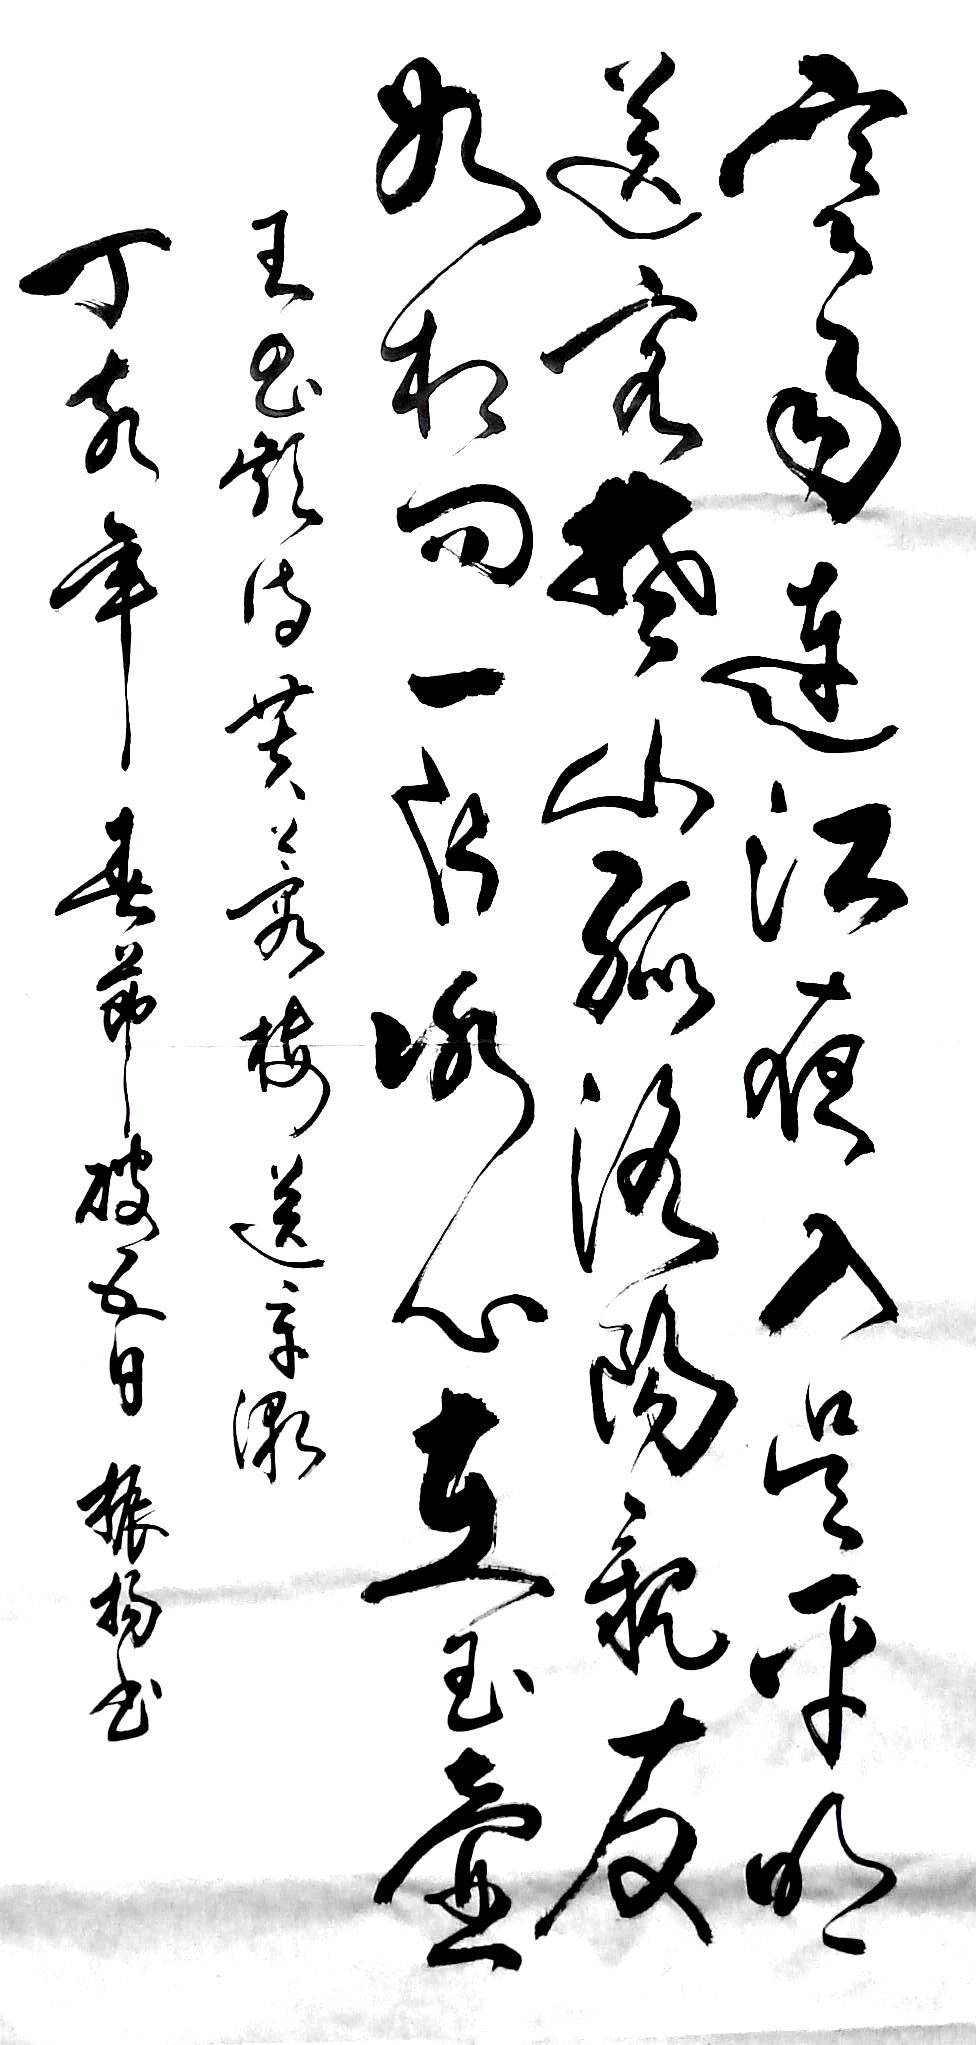 寒雨連江夜入吳平明
送客楚山孤洛陽親友
如相問一片冰心在玉壺
王昌齡詩芙蓉樓送辛漸
丁亥年春節破五日振揚書